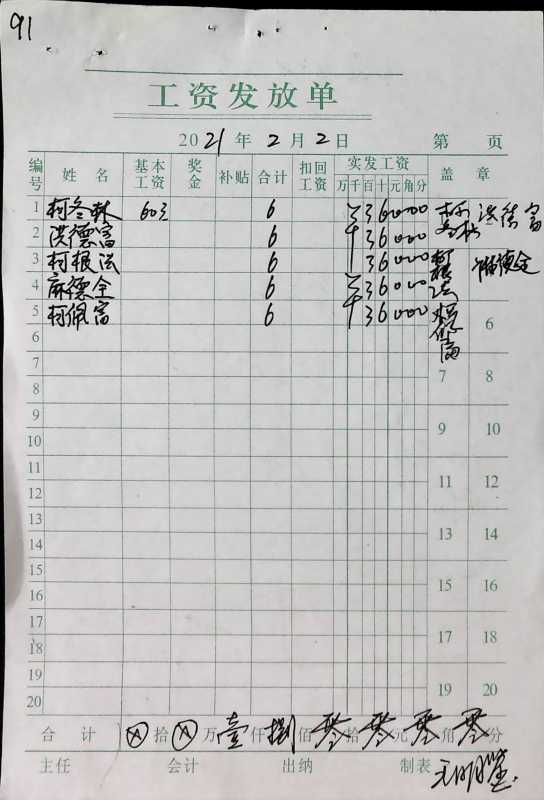 91
工资发放单
2021年2月2日 第 页
编号 姓名 基本工资 奖金 补贴 合计 扣回工资 实发工资 万千百十元角分 盖章
1 柯冬林 60元 6 36000
2 洪德富 6 36000 洪德富
3 柯根法 6 36000 柯根法
4 麻德全 6 36000 麻德全
5 柯佩富 6 36000 柯佩富
6 6
7 7 8
8
9 9 10
10
11 11 12
12
13 13 14
14
15 15 16
16
17 17 18
18
19 19 20
20
合计 ⊗拾⊗万壹仟捌佰零拾零元零角零分
主任 会计 出纳 制表